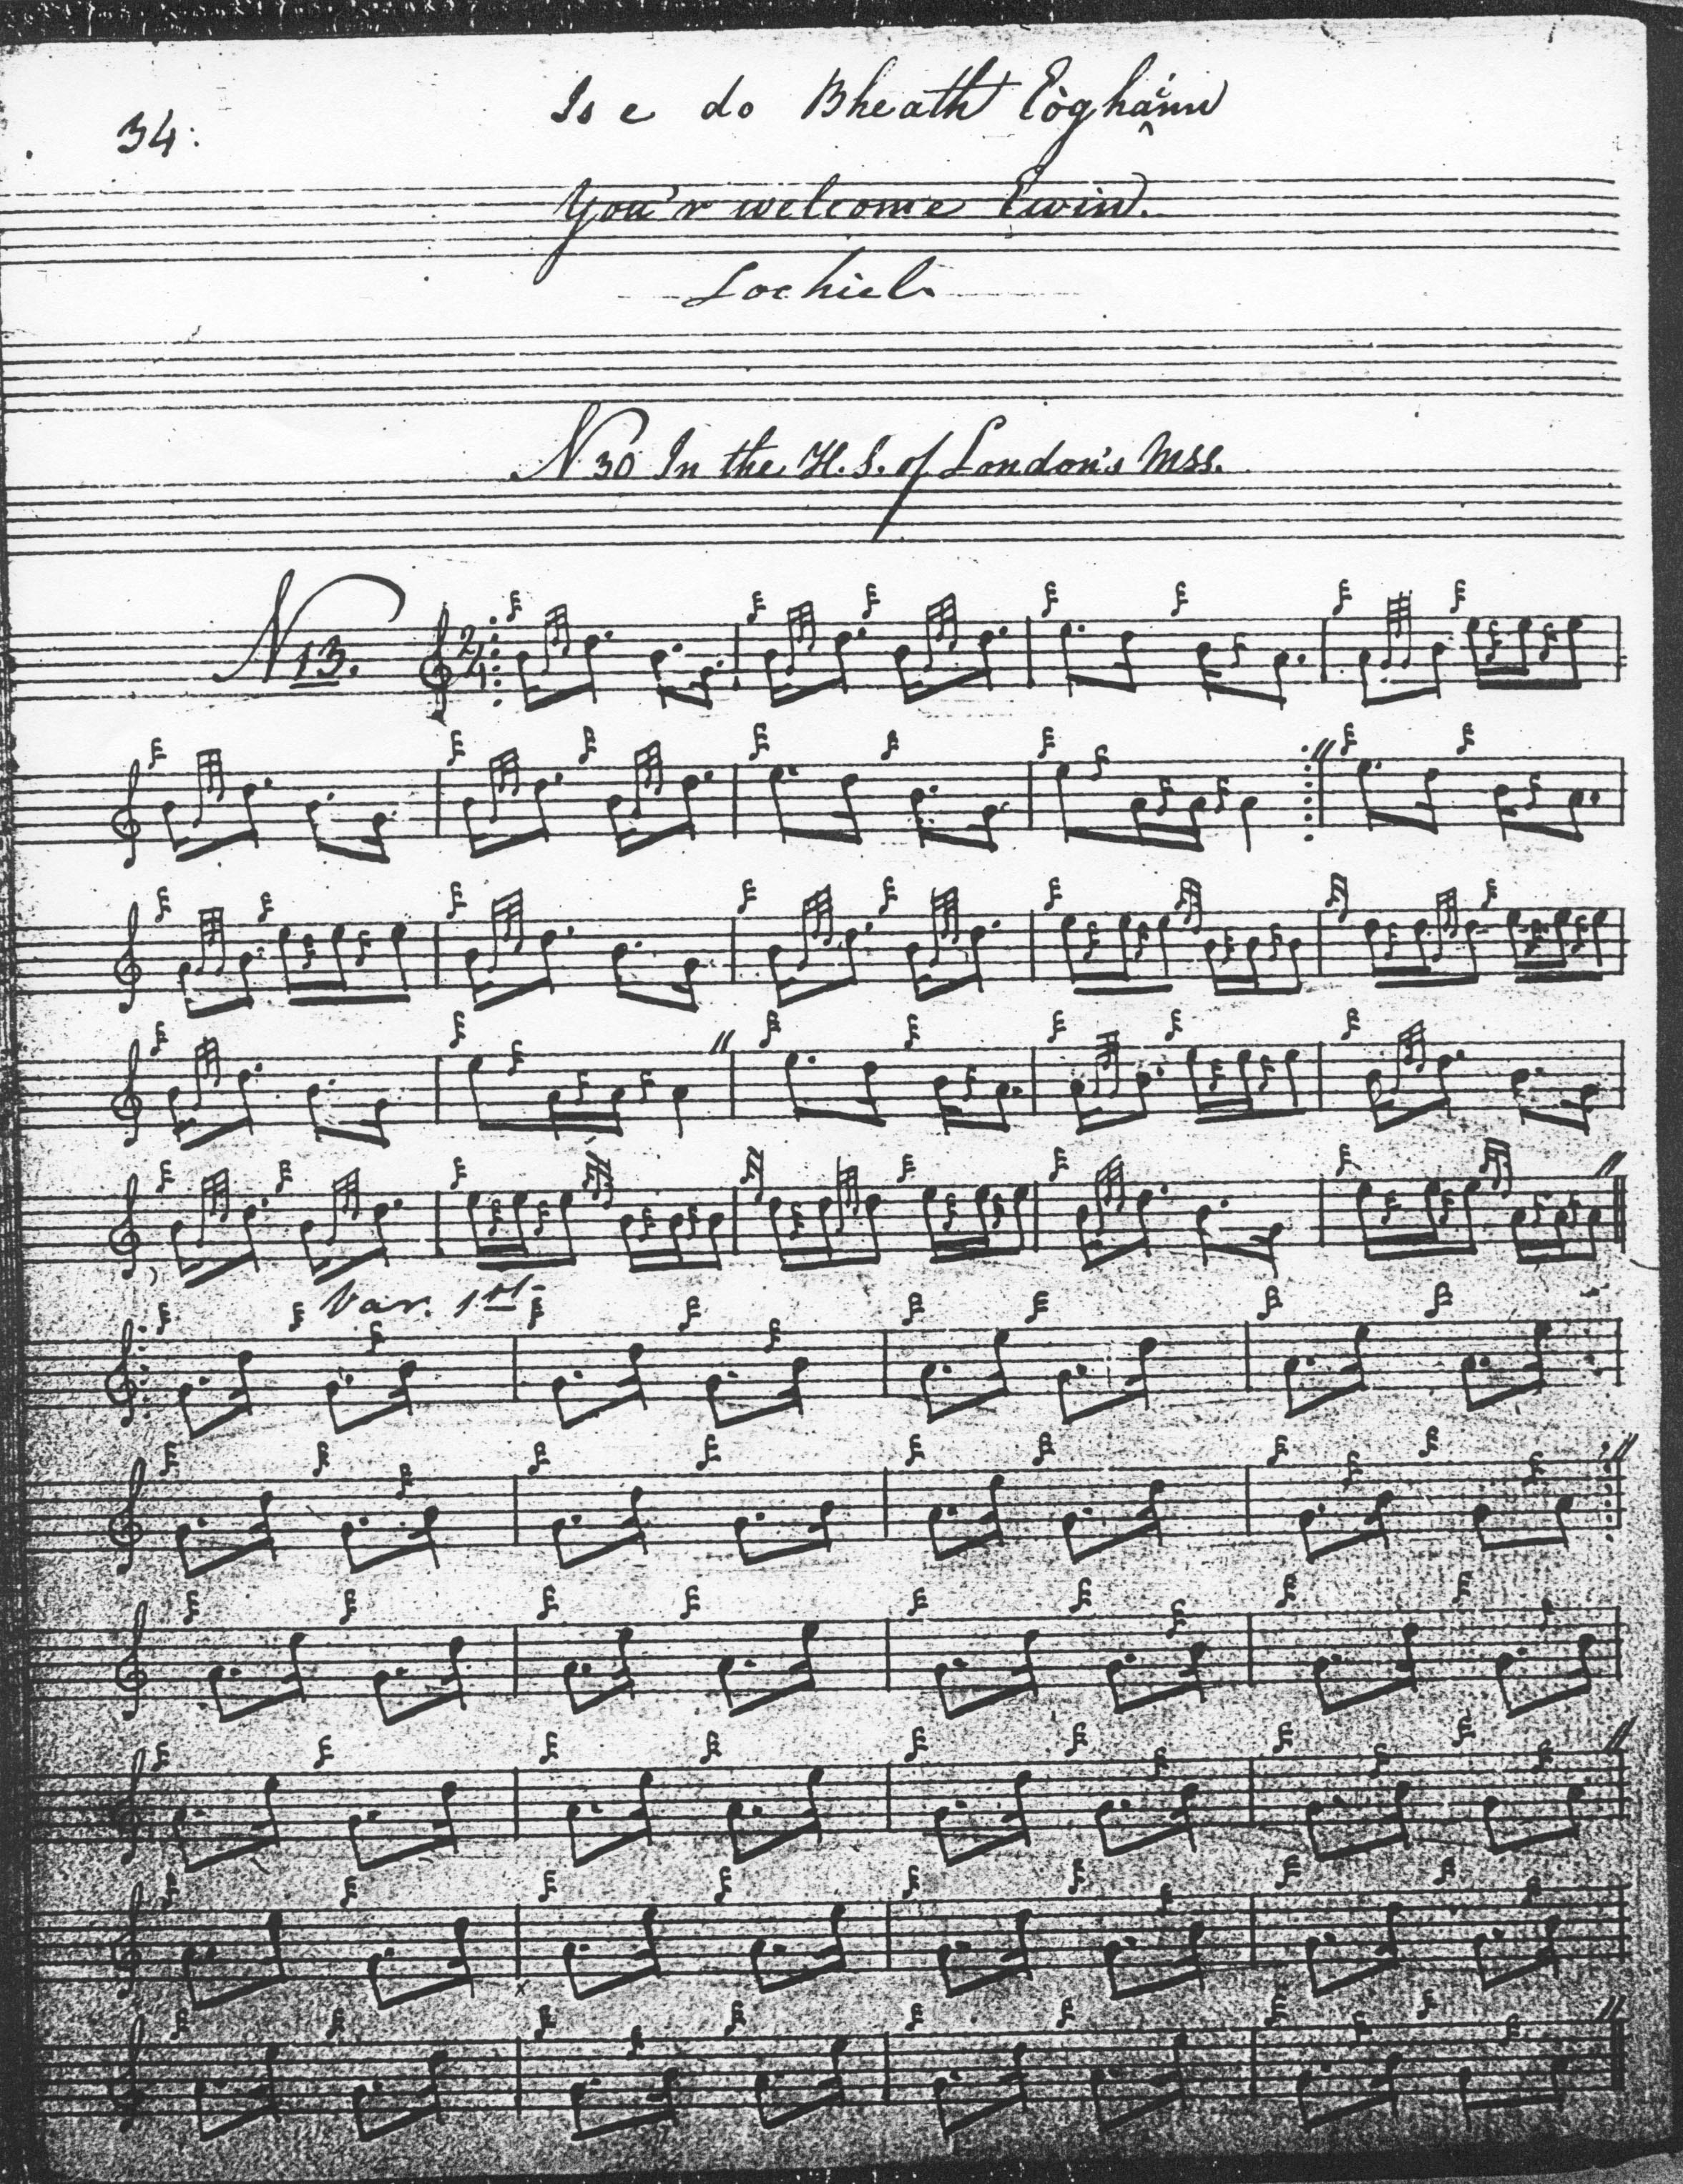 34:
Is e do Bheath Eòghainn
You'r welcome Ewin.
Lochiel.
N 30 In the H. S. of London's Mss.
N 13.
2/4
Var. 1st